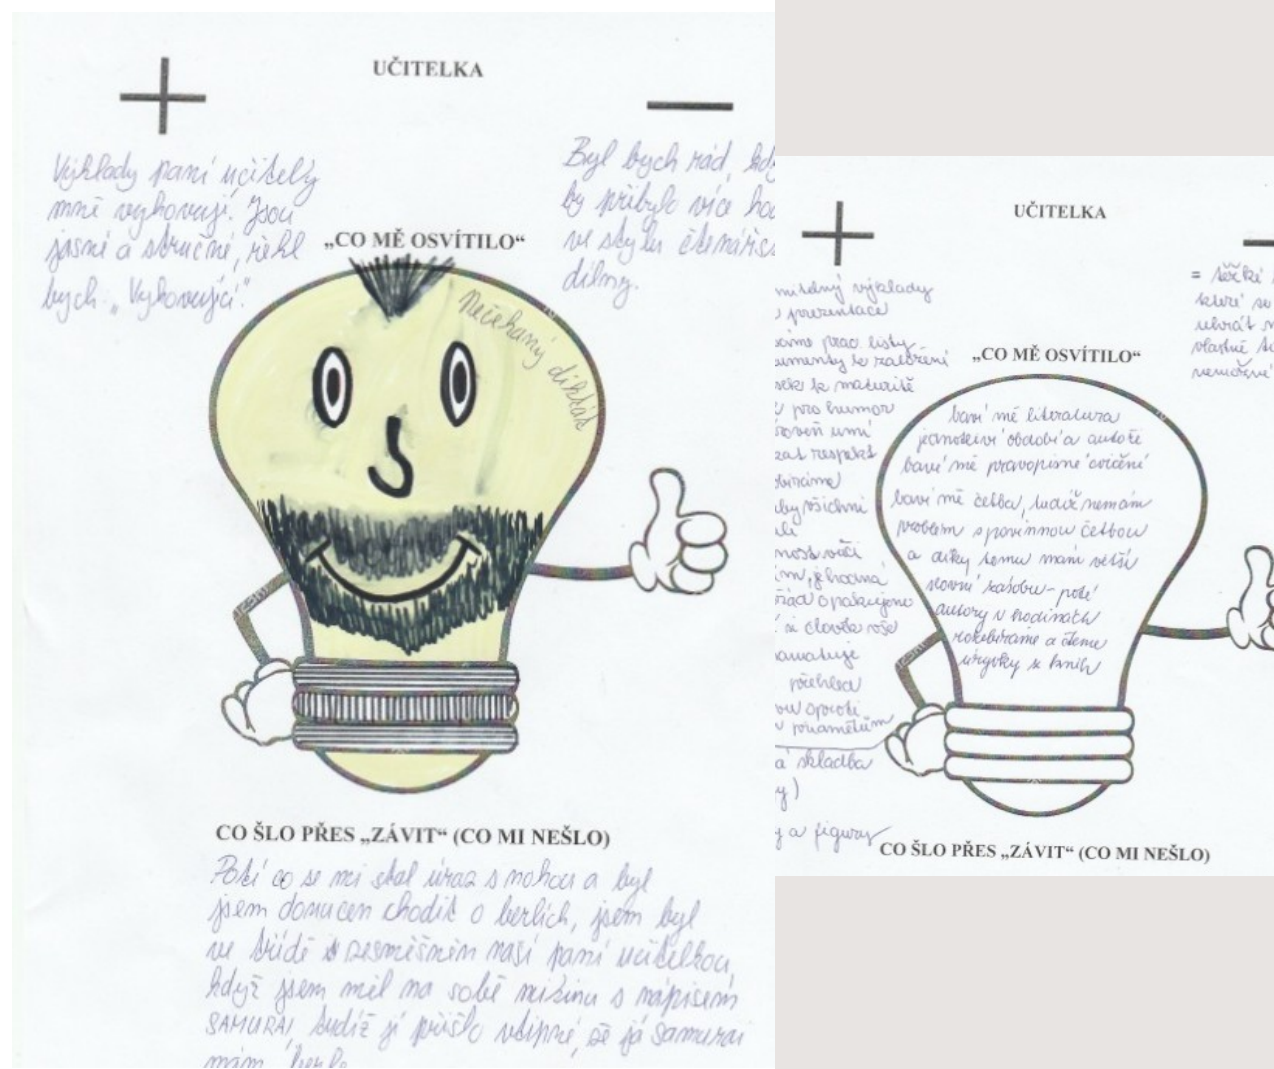 UČITELKA
Výklady paní učitelky
mně vyhovují. Jsou
jasné a stručné, řekl
bych „Vyhovující.“
Byl bych rád, kdy
by přibylo více ho
ve stylu čtenářs
dílny.
„CO MĚ OSVÍTILO“
Nečekaný diktát
CO ŠLO PŘES „ZÁVIT“ (CO MI NEŠLO)
Poté co se mi stal úraz s nohou a byl
jsem donucen chodit o berlích, jsem byl
ve třídě zesměšněn naší paní učitelkou,
když jsem měl na sobě mikinu s nápisem
SAMURAI, tudíž jí přišlo vtipné, že já samurai
mám berle
UČITELKA
výklady
prezentace
prac. listy
k založení
k maturitě
pro humor
umí
respekt
všichni
hodiná
opakujeme
si člověk vše
přehled
oproti
skladba
y)
a figury
= těžké
které
vlastně
„CO MĚ OSVÍTILO“
baví mě literatura
jednotlivé období a autoři
baví mě pravopisné cvičení
baví mě četba, tudíž nemám
problém s povinnou četbou
a díky tomu mám větší
slovní zásobu - poté
autory v hodinách
rozebíráme a čteme
úryvky z knih
CO ŠLO PŘES „ZÁVIT“ (CO MI NEŠLO)